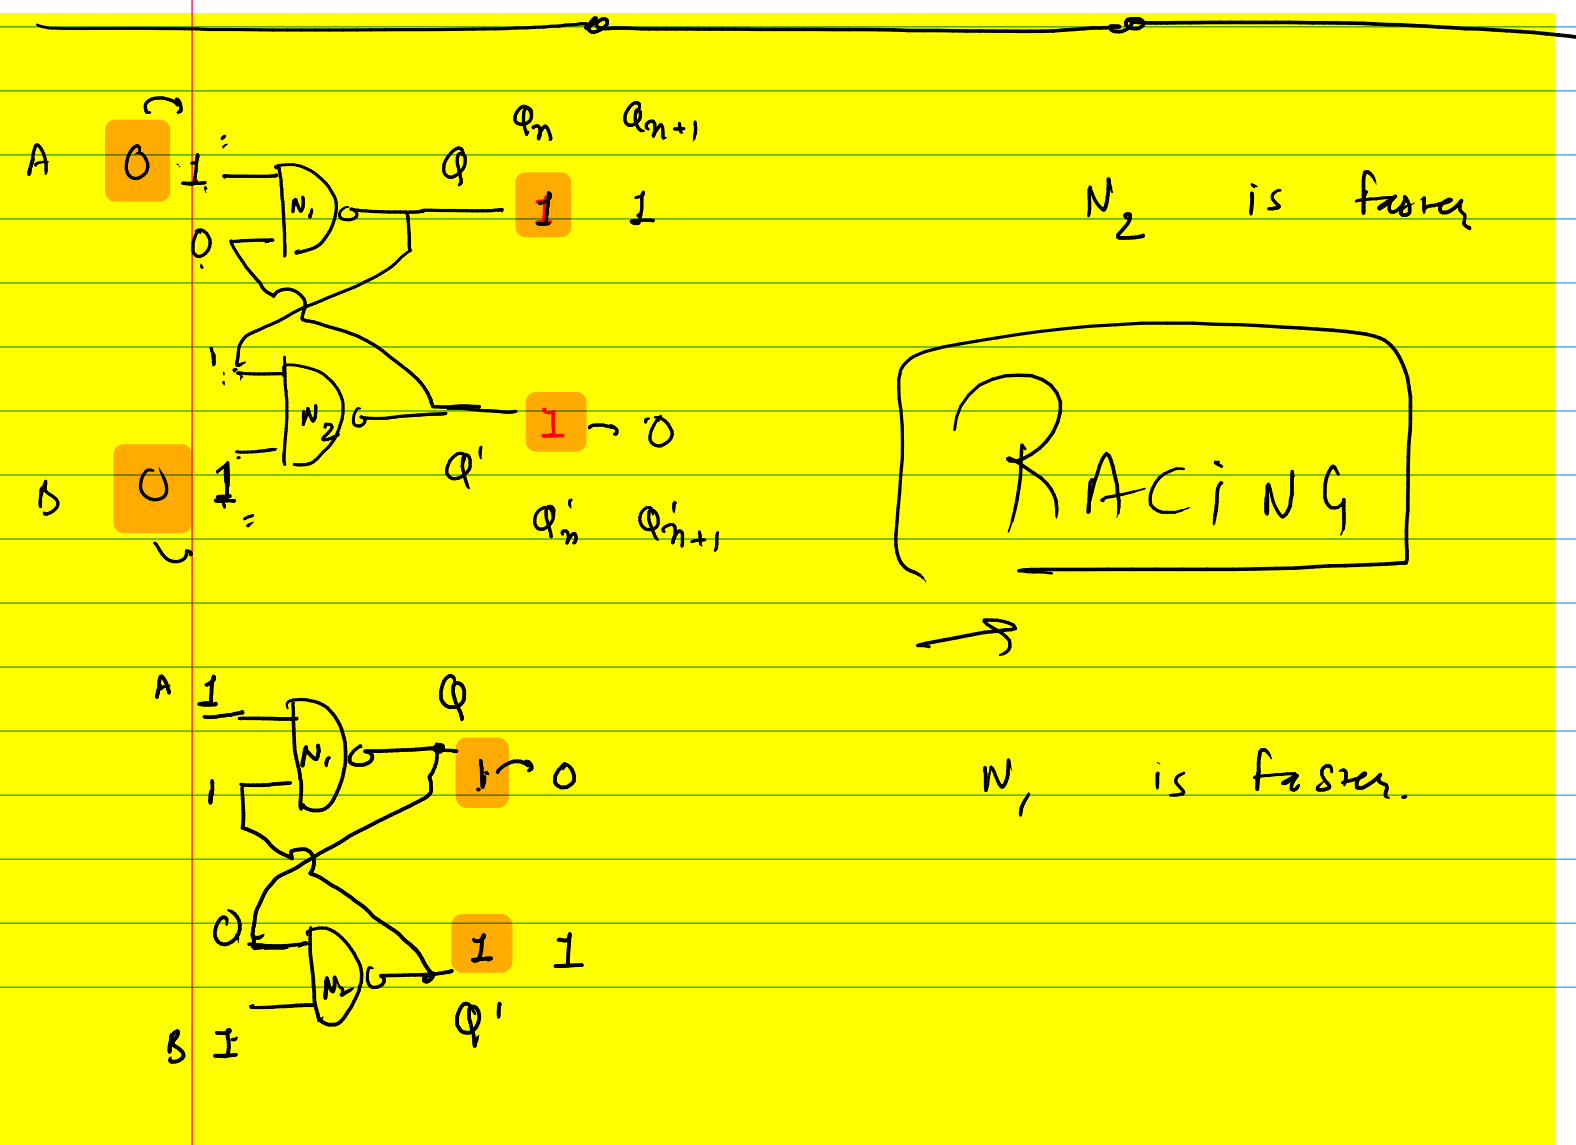 Qn Qn+1
A 0 1 Q
N1 1 1
0
N2 is faster
1
N2 1 0
Q'
B 0 1
Q'n Q'n+1
RACING
A 1 Q
N1 1 0
1
N1 is faster.
0
N2 1 1
Q'
B 1